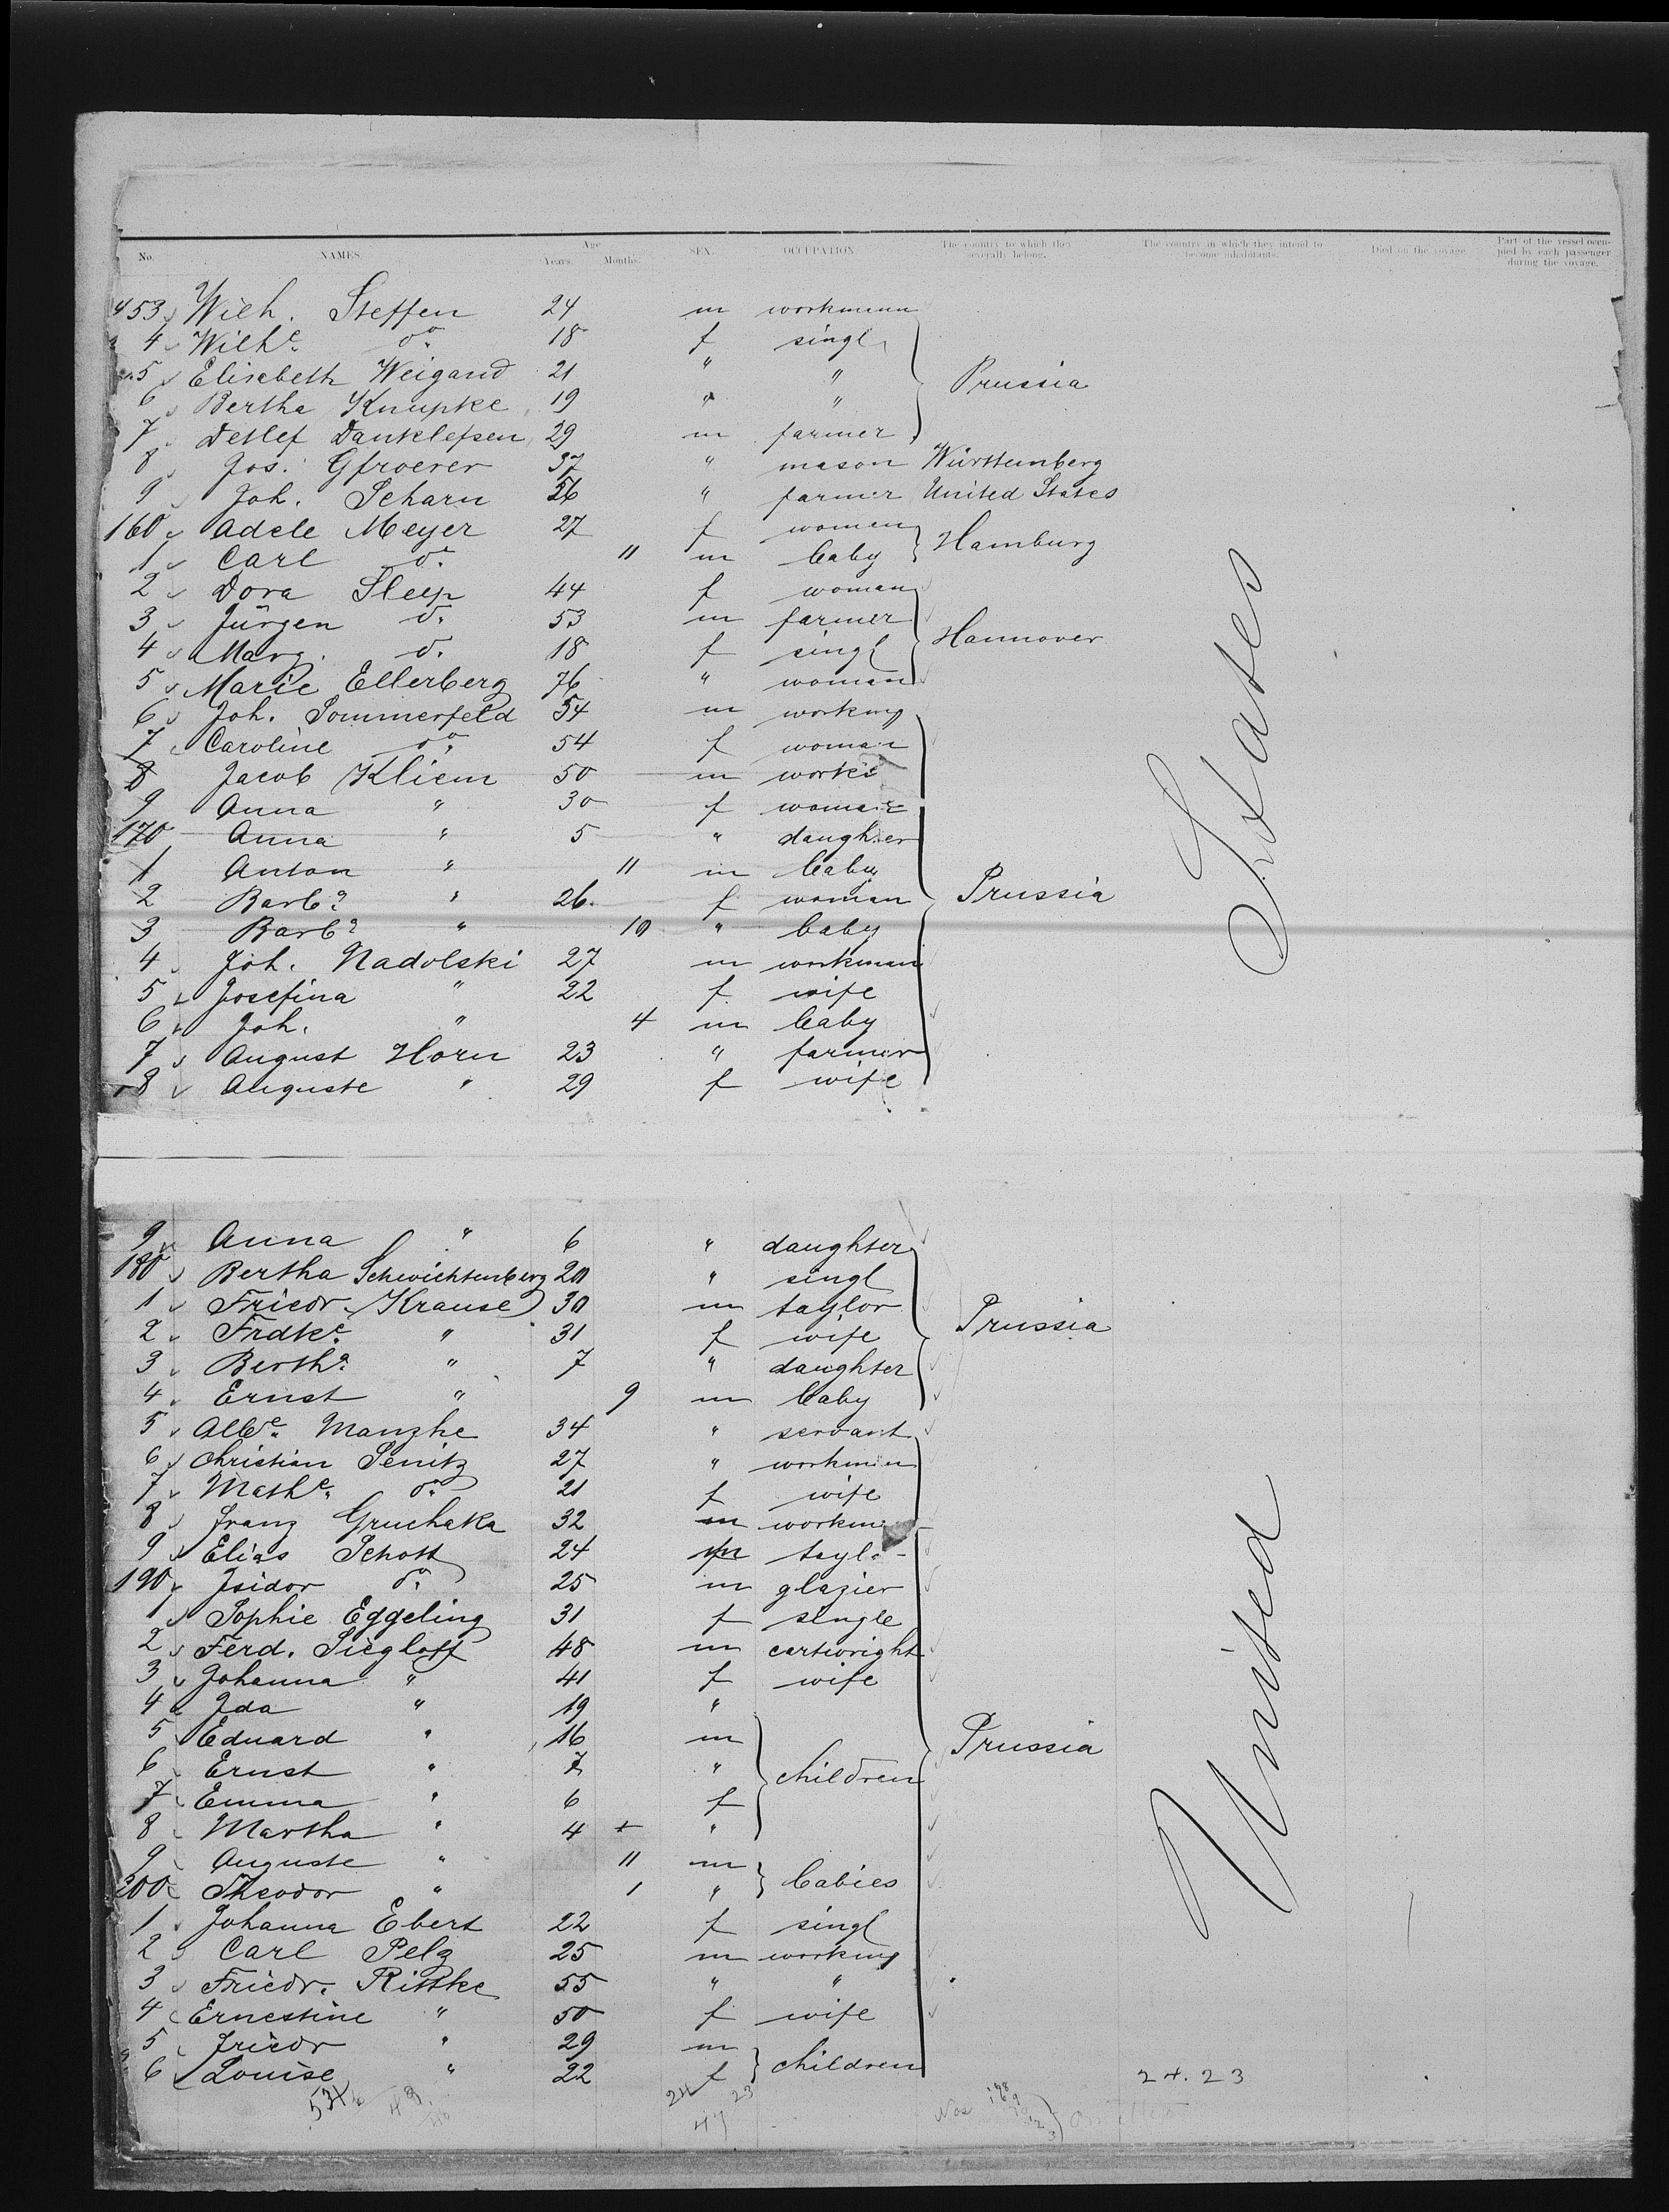 No. NAMES Age Years. Months. SEX. OCCUPATION The country to which they severally belong. The country in which they intend to become inhabitants. Died on the voyage Part of the vessel occupied by each passenger during the voyage.
453 Wilh. Steffen 24 m workmann
4 Wilhe. do. 18 f singl
5 Elisabeth Weigand 21 " " Prussia
6 Bertha Knupke 19 " "
7 Detlef Danklefsen 29 m farmer
8 Jos. Gfroerer 37 " mason Württemberg
9 Joh. Scharn 56 " farmer United States
160 Adele Meyer 27 f women Hamburg
1 Carl do. 11 m baby
2 Dora Sleep 44 f woman
3 Jürgen do. 53 m farmer Hannover
4 Marg. do. 18 f singl
5 Marie Ellerberg 76 " woman
6 Joh. Sommerfeld 54 m working
7 Caroline do. 54 f woman
8 Jacob Kliem 50 m works
9 Anna " 30 f woman
170 Anna " 5 " daughter
1 Anton " 11 m baby
2 Barba " 26 f woman Prussia
3 Barba " 10 " baby
4 Joh. Nadolski 27 m workman
5 Josefina " 22 f wife
6 Joh. " 4 m baby
7 August Horn 23 " farmer
8 Auguste " 29 f wife
9 Anna " 6 " daughter
180 Bertha Schwichtenberg 20 " singl
1 Friedr. Krause 30 m taylor Prussia
2 Frdke. " 31 f wife
3 Bertha. " 7 " daughter
4 Ernst " 9 m baby
5 Albe. Manzke 34 " servant
6 Christian Senitz 27 " workmin
7 Mathe. do. 21 f wife
8 Franz Gruchaka 32 m workm
9 Elias Schott 24 m tayl
190 Isidor do. 25 m glazier
1 Sophie Eggeling 31 f single
2 Ferd. Siegloff 48 m cartwright
3 Johanna " 41 f wife
4 Ida " 19 "
5 Eduard " 16 m Prussia
6 Ernst " 7 " children
7 Emma " 6 f
8 Martha " 4 "
9 Auguste " 11 m babies
200 Theodor " 1 "
1 Johanna Ebert 22 f singl
2 Carl Pelz 25 m working
3 Friedr. Rittke 55 " "
4 Ernestine " 50 f wife
5 Friedr " 29 m children
6 Louise " 22 f
24. 23
24 23
47
United States